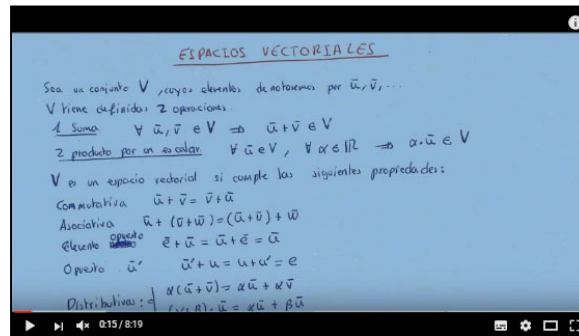 ESPACIOS VECTORIALES
Sea un conjunto V, cuyos elementos denotaremos por ū, v̄, ...
V tiene definidas 2 operaciones.
1 Suma ∀ ū, v̄ ∈ V ⇒ ū+v̄ ∈ V
2 producto por un escalar ∀ ū ∈ V, ∀ α ∈ ℝ ⇒ α·ū ∈ V
V es un espacio vectorial si cumple las siguientes propiedades:
Conmutativa ū+v̄ = v̄+ū
Asociativa ū+(v̄+w̄)=(ū+v̄)+w̄
Elemento opuesto ē+ū = ū+ē = ū
Opuesto ū' ū'+u = u+u' = e
Distributivas: α(ū+v̄) = αū + αv̄
(α+β)·ū = αū + βū
0:15 / 8:19